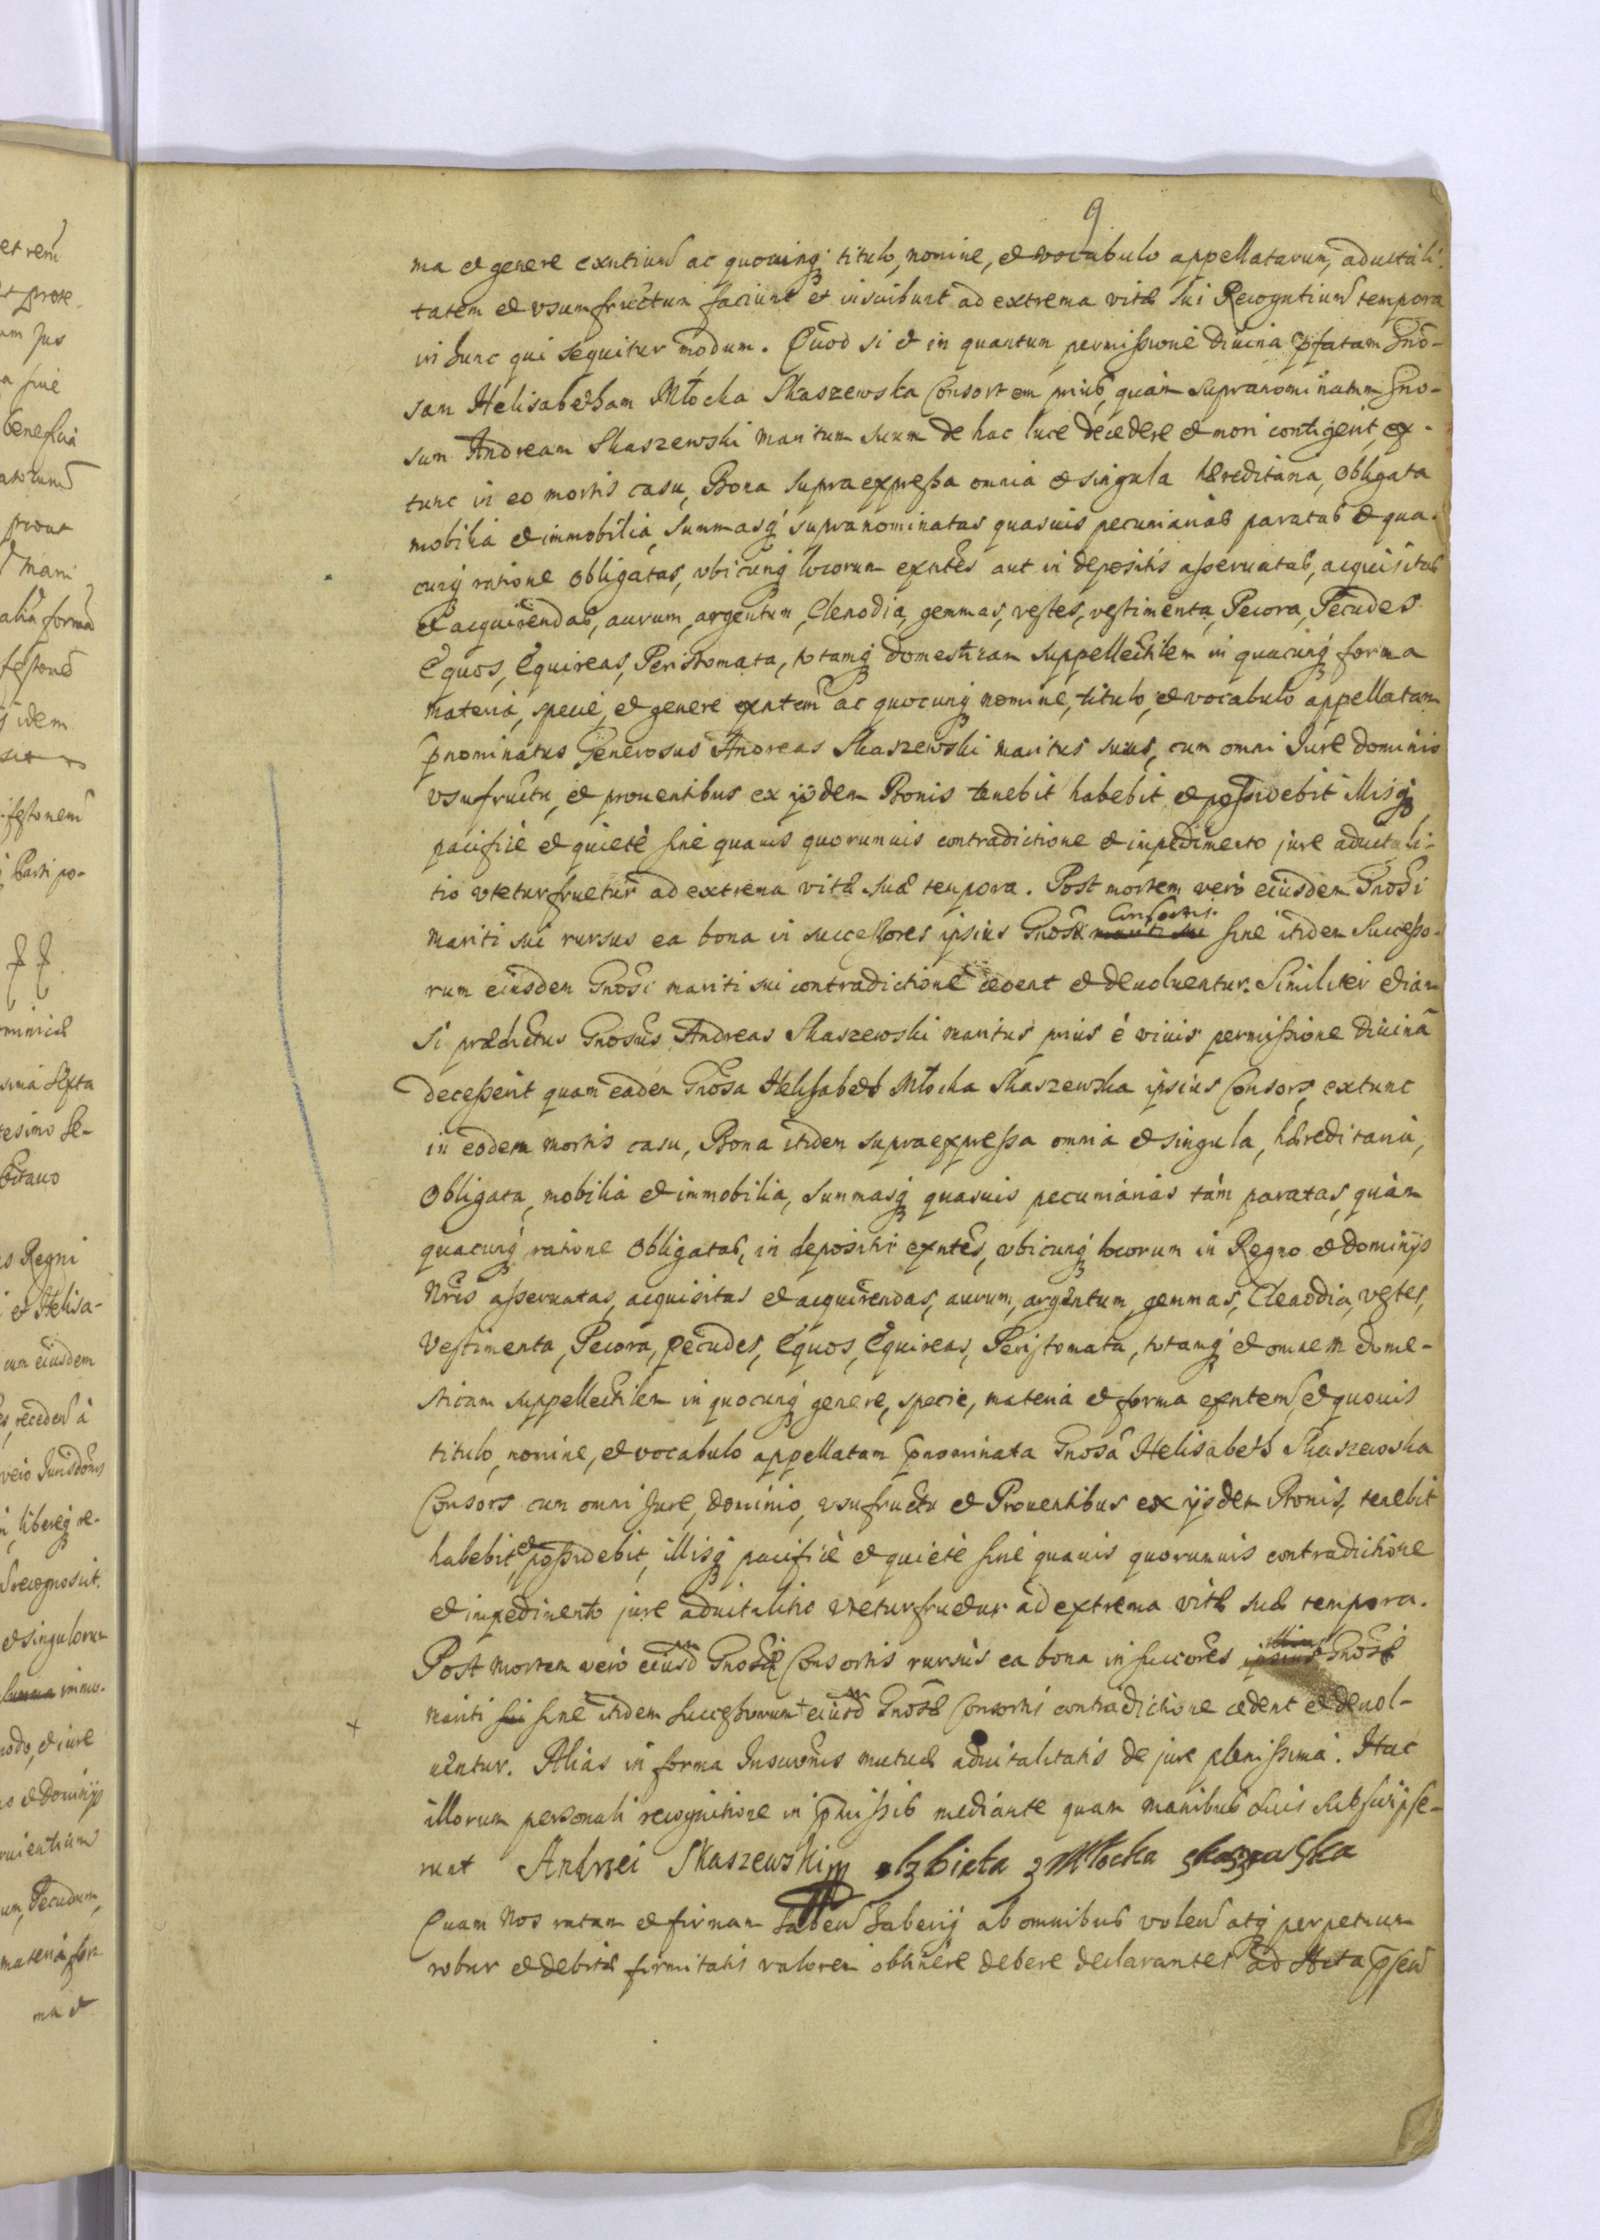 9
ma et genere exntium ac quouinq titulo, nomine, et vocabulo appellatarum, aduitali-
tatem et vsumfructum faciunt et inscribunt ad extrema vitæ sui Recogntium tempora
in hunc qui sequitur modum. Quod si et in quantum permissione diuina pfatam Gno-
sam Helisabetham Młocka Skaszewska Consortem prius, quam supranominatum Gno-
sum Andream Skaszewski maritum suum de hac luce decedere et mori contigerit, ex-
tunc in eo mortis casu, Bona supraexpressa omnia et singula hæreditaria, obligata
mobilia et immobilia, summasq supranominatas quasuis pecuniarias paratas et qua-
cunq ratione obligatas, vbicunq locorum exntes aut in depositis asseruatas, acquisitas
et acquirendas, aurum, argentum, Clenodia, gemmas, vestes, vestimenta, Pecora, Pecudes
Equos, Equireas, Peristomata, totamq domesticam suppellectilem in quacunq forma
materia, specie, et genere exntem ac quocunq nomine, titulo, et vocabulo appellatam
pnominatus Generosus Andreas Skaszewski maritus suus, cum omni Jure dominio
vsufructu, et prouentibus ex ijsdem Bonis tenebit habebit et possidebit illisq
pacificè et quietè sine quauis quorumuis contradictione et impedimento jure aduitali-
tio vtetur fruetur ad extrema vitæ suæ tempora. Post mortem verò eiusdem Gnosi
Consortis
mariti sui rursus ea bona in successores ipsius Gnosæ mariti sui sine itidem Successo-
rum eiusdem Gnosi mariti sui contradictione cedent et deuoluentur. Similiter etiam
Si prædictus Gnosus Andreas Skaszewski maritus prius è viuis permissione diuina
decesserit quam eadem Gnosa Helisabeth Młocka Skaszewska ipsius Consors, extunc
in eodem mortis casu, Bona itidem supraexpressa omnia et singula, hæreditaria,
obligata, mobilia et immobilia, summasq quasuis pecuniarias tàm paratas, quàm
quacunq ratione obligatas, in depositis exntes, vbicunq locorum in Regno et dominijs
Nris asseruatas, acquisitas et acquirendas, aurum, argentum, gemmas, Clenodia, vestes,
vestimenta, Pecora, pecudes, Equos, Equireas, Peristomata, totamq et omnem dome-
sticam suppellectilem in quocunq genere, specie, materia et forma exntem, et quouis
titulo, nomine, et vocabulo appellatam pnominata Gnosa Helisabeth Skaszewska
Consors cum omni Jure, dominio, vsufructu et Prouentibus ex ijsdem Bonis, tenebit
habebit, et possidebit, illisq pacificè et quietè sine quauis quorumuis contradictione
et impedimento jure aduitalitio vtetur fruetur ad extrema vitæ suæ tempora.
Post mortem verò eiusd Gnosæ Consortis rursus ea bona in succores ipsius Gnosi
mariti sui sine itidem successorum + eiusd Gnosæ Consortis contradictione cedent et deuol-
uentur. Alias in forma Inscronis mutuæ aduitalitatis de jure plenissima. Hac
illorum personali recognitione in pmissis mediante quam manibus suis subscripse-
runt Andrzei Skaszewski mp Elzbieta z Młocka Skaszewska
Quam nos ratam et firmam haben haberiq ab omnibus volen atq perpetuum
robur et debitæ firmitatis valorem obtinere debere declarantes ad Acta psen